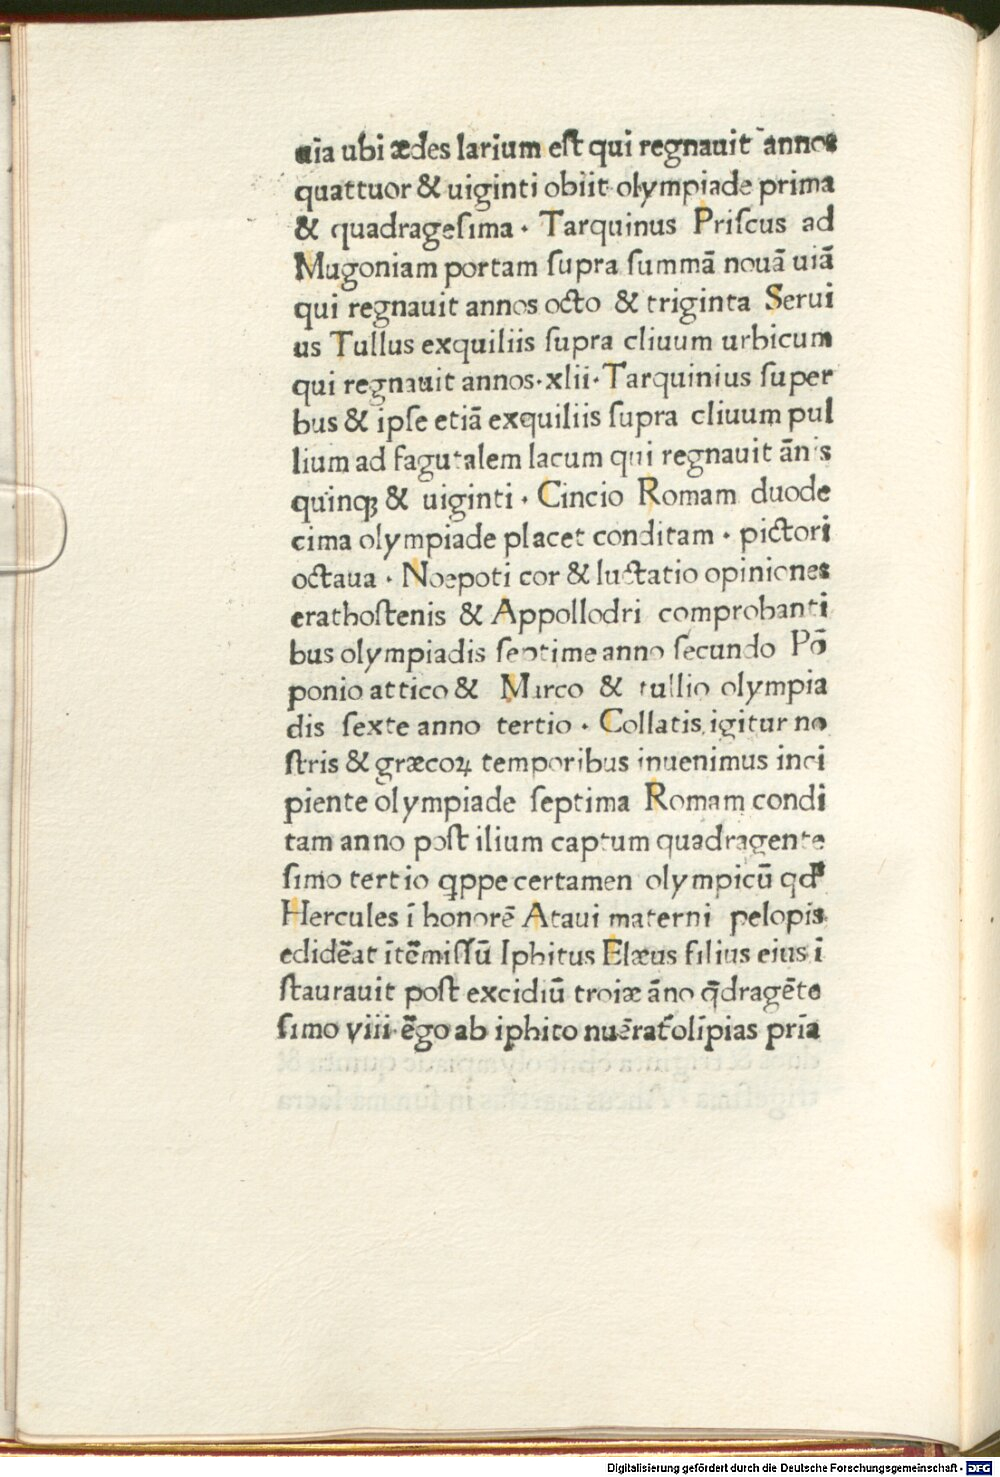 uia ubi ædes larium eſt qui regnauit annos
quattuor & uiginti obiit olympiade prima
& quadrageſima · Tarquinus Priſcus ad
Mugoniam portam ſupra ſummā nouā uiā
qui regnauit annos octo & triginta Serui
us Tullus exquiliis ſupra cliuum urbicum
qui regnauit annos·xlii·Tarquinius ſuper
bus & ipſe etiā exquiliis ſupra cliuum pul
lium ad fagutalem lacum qui regnauit ānis
quinqꝫ & uiginti · Cincio Romam duode
cima olympiade placet conditam · pictori
octaua · Noepoti cor & luctatio opiniones
erathoſtenis & Appollodri comprobanti
bus olympiadis ſeptime anno ſecundo Pō
ponio attico & Marco & tullio olympia
dis ſexte anno tertio · Collatis igitur no
ſtris & græcoꝝ temporibus inuenimus inci
piente olympiade ſeptima Romam condi
tam anno poſt ilium captum quadragente
ſimo tertio ꝗppe certamen olympicū qd
Hercules ī honorē Ataui materni pelopis
edidēat ītēmiſſū Iphitus Elæus filius eius ī
ſtaurauit poſt excidiū troiæ āno q̄dragēte
ſimo viii·ēgo ab iphito nuērat᷑ olīpias prīa
Digitalisierung gefördert durch die Deutsche Forschungsgemeinschaft - DFG